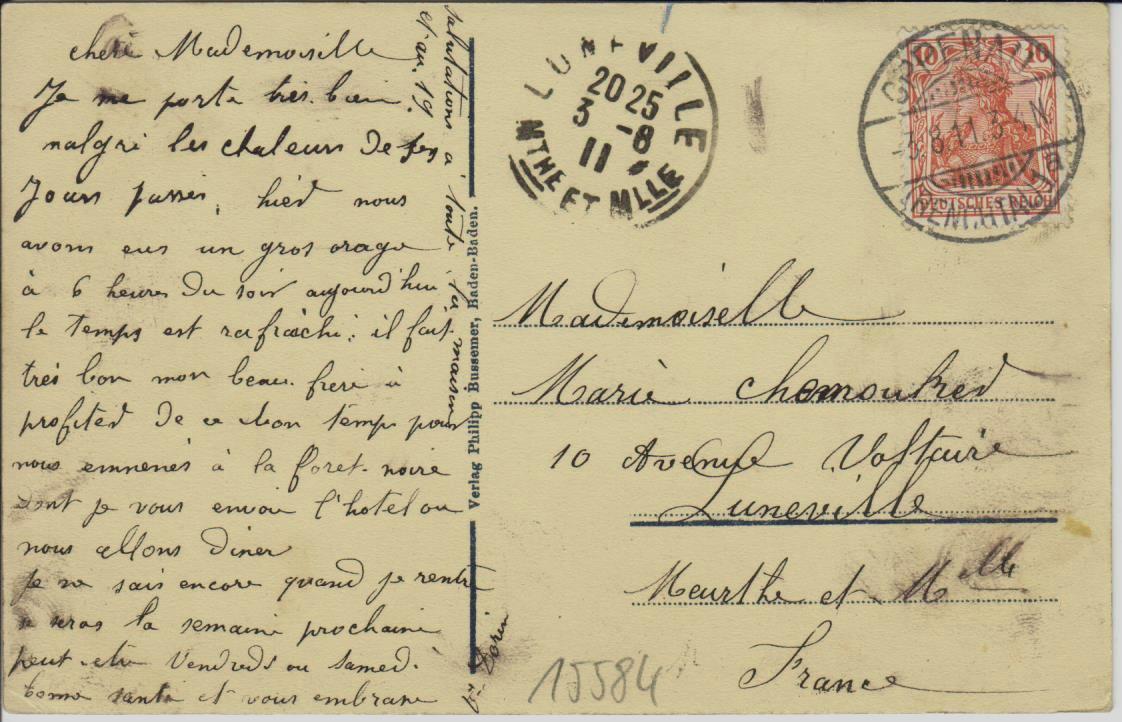 cherè Mademoiselle
Je me porte très bien,
malgri les chaleurs de ses
Jours passes, hier nous
avons eus un gros orage
à 6 heures du soir aujourd'hui
le temps est rafraichi: il fait
très bon mon beau. frere à
profiter de ce bon temps pour
nous emmenés à la foret-noire
dont je vous envoie l'hotel ou
nous allons diner
je ne sais encore quand je rentre
se seras la semaine prochaine
peut-etre Vendredi ou samedi
bonne santé et vous embrasse
salutations à toute la maison
et au. 19.
Verlag Philipp Bussemer, Baden-Baden.
LUNEVILLE
20 25
3 -8
11
MTHE ET MLLE
10 10
DEUTSCHES REICH
OPPENAU
8.11.3
a
Mademoiselle
Marie
10 Avenue Voltaire
Luneville
Meurthe et Mlle
France
15584